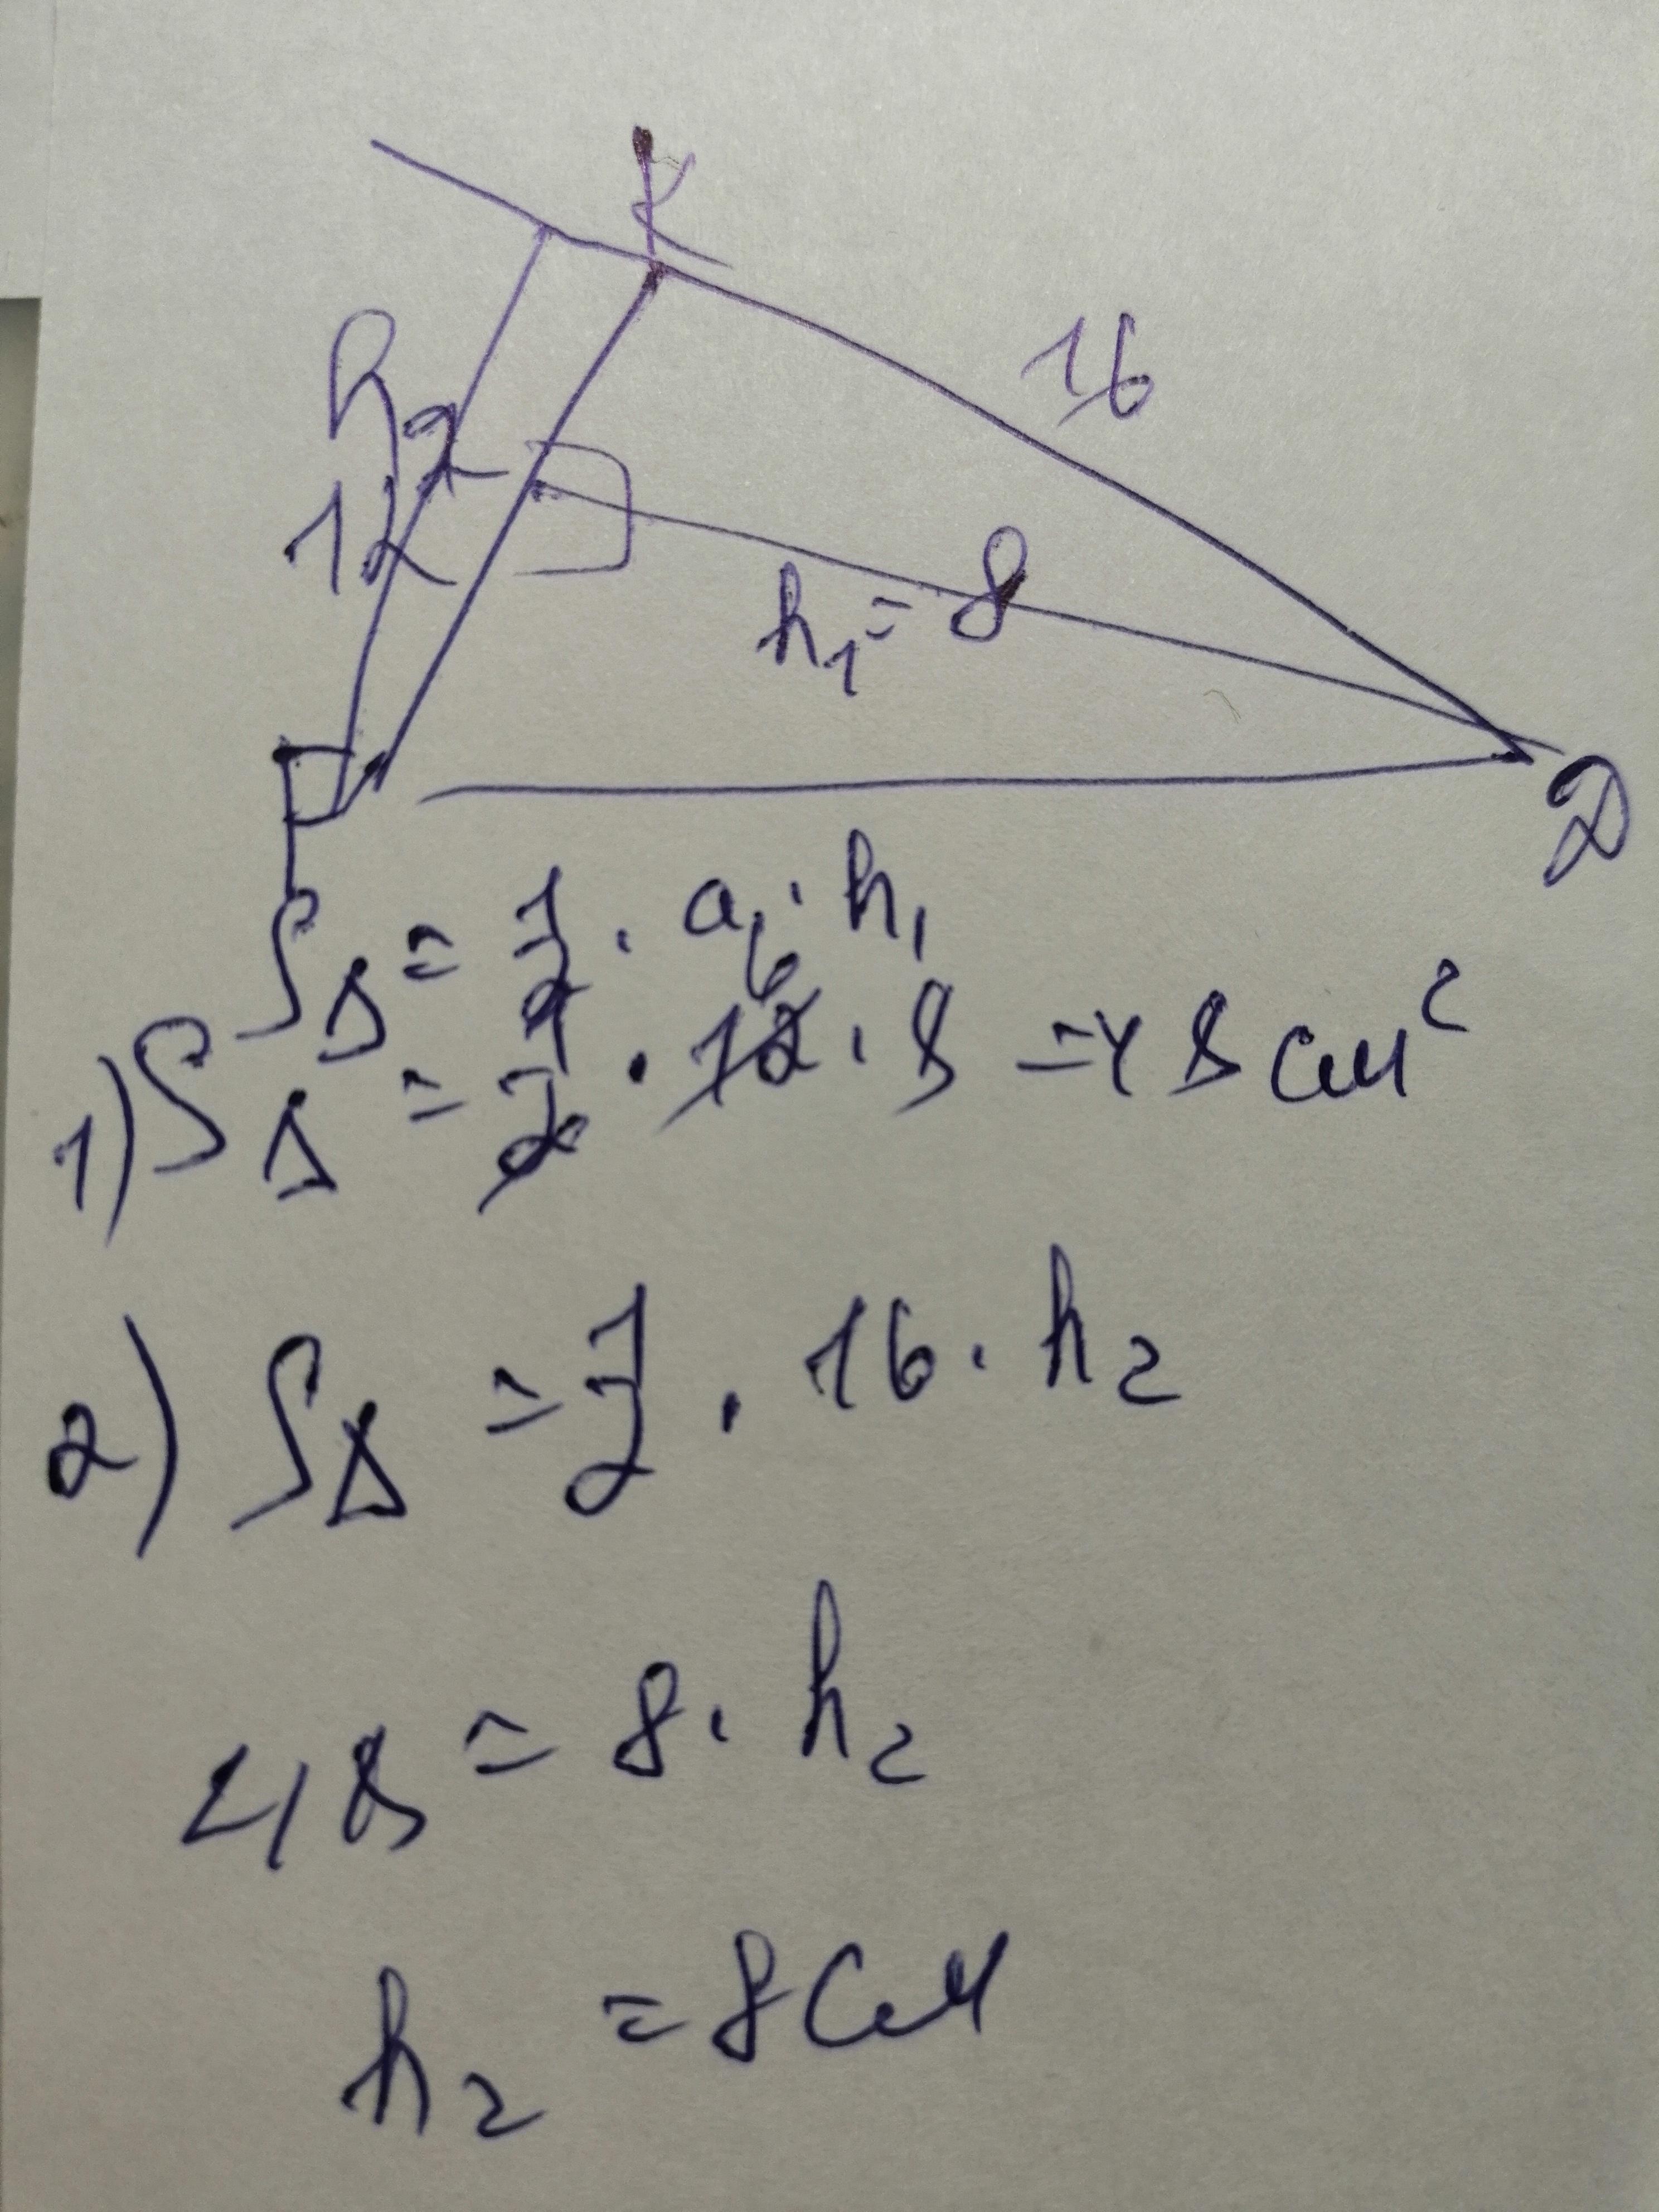 K
16
h2
12
h1 = 8
D
SΔ = 1/2 · a · h1
6
1) SΔ = 1/2 · 12 · 8 = 48 см²
2) SΔ = 1/2 · 16 · h2
48 = 8 · h2
h2 = 8 см